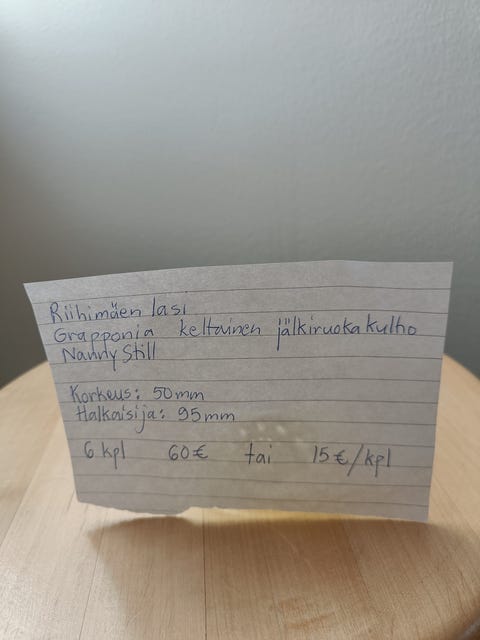 Riihimäen lasi
Grapponia keltainen jälkiruokakulho
Nanny Still
Korkeus: 50mm
Halkaisija: 95mm
6 kpl 60€ tai 15€/kpl